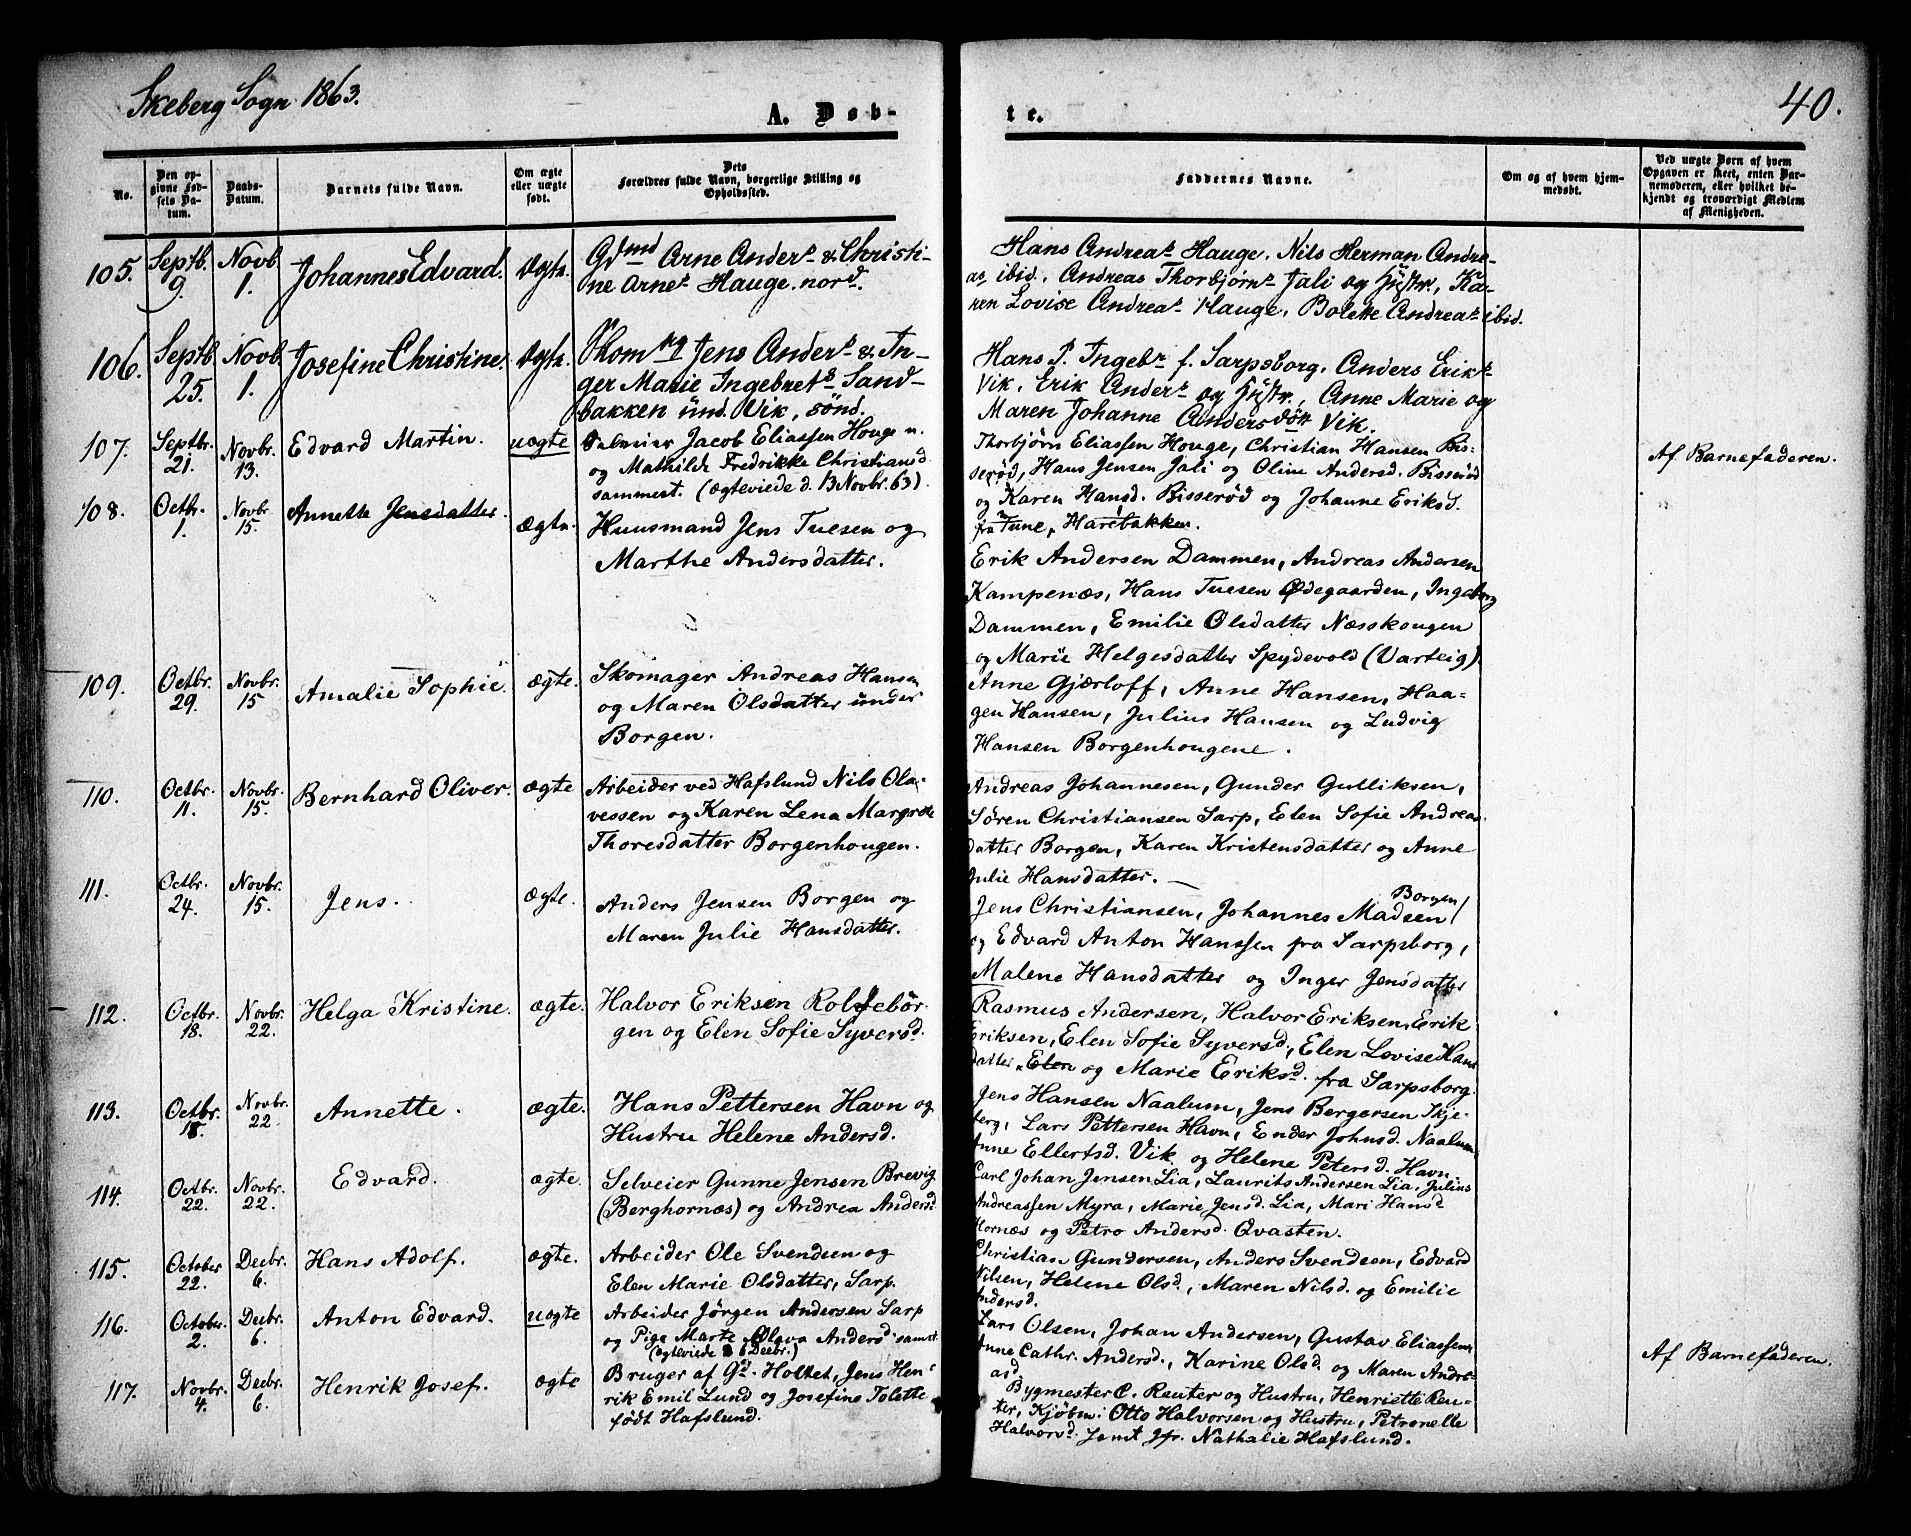 Skeberg Sogn 1863.
40.
A. Døb-
te.
No.
Den op-
givne Fød-
sels Da-
tum.
Daabs-
Datum.
Barnets fulde Navn.
Om ægte
eller uægte
født.
Dets
Forældres fulde Navn, borgerlige Stilling og
Opholdssted.
Faddernes Navne.
Om og af hvem hjem-
medøbt.
Ved uægte Børn af hvem
Opgaven er skeet, enten Bar-
nemoderen, eller hvilket be-
kjendt og troværdigt Medlem
af Menigheden.
105. Septb. 9. Novb 1. Johannes Edvard. ægte. Gdmd Arne Anders & Christi-
ne Arnes Hauge. nord.
Hans Andreas Hauge. Nils Herman Andre-
as ibid. Andreas Thorbjørns Jali og Hustr., Ka-
ren Lovise Andreas Hauge, Bolette Andreas ibid.
106. Septb 25. Novb 1. Josefine Christine. ægte. Skomgr Jens Anders & In-
ger Marie Ingebrets Sand-
bakken und. Vik, sønd.
Hans P. Ingebr f. Sarpsborg. Anders Eriks
Vik, Erik Anders og Hustr., Anne Marie og
Maren Johanne Andersdøtt. Vik.
107. Septbr. 21. Novbr. 13. Edvard Martin. uægte Jacob Eliassen Houge n.
og Mathilde Fredrikke Christiansd.
sammest. (ægteviede d. 13 Novbr. 63).
Thorbjørn Eliassen Houge, Christian Hansen Bis-
serød, Hans Jensen Jali og Oline Andersd. Bisserød
og Karen Hansd. Bisserød og Johanne Eriksd.
fra Tune, Harebakken.
Af Barnefaderen.
108. Octbr. 1. Novbr 15. Annette Jensdatter. ægte. Huusmand Jens Tuesen og
Marthe Andersdatter.
Erik Andersen Dammen, Andreas Andersen
Kampenæs, Hans Tuesen Ødegaarden, Ingeborg
Dammen, Emilie Olsdatter Næsskougen
og Marie Helgesdatter Spydevold (Varteig).
109. Octbr. 29. Novbr. 15 Amalie Sophie. ægte. Skomager Andreas Hansen
og Maren Olsdatter under
Borgen.
Anne Gjærloff, Anne Hansen, Haa-
gen Hansen, Julius Hansen og Ludvig
Hansen Borgenhougene.
110. Octbr. 11. Novbr. 15. Bernhard Oliver. ægte Arbeider ved Hafslund Nils Ola-
vessen og Karen Lena Margrete
Thoresdatter Borgenhougen.
Andreas Johannesen, Gunder Gulliksen,
Søren Christiansen Sarp, Elen Sofie Andreas
datter Borgen, Karen Kristensdatter og Anne
Julie Hansdatter.
111. Octbr. 24. Novbr. 15. Jens. ægte. Anders Jensen Borgen og
Maren Julie Hansdatter.
Borgen/
Jens Christiansen, Johannes Madsen/
og Edvard Anton Hanssen fra Sarpsborg,
Malene Hansdatter og Inger Jensdatter
112. Octbr. 18. Novbr. 22. Helga Kristine. ægte. Halvor Eriksen Rolfsebør-
gen og Elen Sofie Syversd.
Rasmus Andersen, Halvor Eriksen, Erik
Eriksen, Elen Sofie Syversd., Elen Lovise Hans
datter, Elen og Marie Eriksd. fra Sarpsborg.
113. Octbr. 15. Novbr. 22. Annette. ægte. Hans Pettersen Havn og
Hustru Helene Andersd.
Jens Hansen Naalum, Jens Bergersen Skje-
berg, Lars Pettersen Havn, Ender Johnsd. Naalum
Anne Ellertsd. Vik og Helene Petersd. Havn
114. Octbr. 22. Novbr. 22. Edvard. ægte. Selveier Gunne Jensen Brevig
(Berghornæs) og Andrea Andersd
Carl Johan Jensen Lia, Laurits Andersen Lia, Julius
Andreassen Myra, Marie Jensd. Lia, Mari Hansd
Hornæs og Petro Andersd. Qvasten.
115. October 22. Decbr. 6. Hans Adolf. ægte. Arbeider Ole Svendsen og
Elen Marie Olsdatter, Sarp.
Christian Gundersen, Anders Svendsen, Edvard
Nilsen, Helene Olsd., Maren Nilsd. og Emilie
Andersd.
116. October. 2. Decbr. 6. Anton Edvard. uægte Arbeider Jörgen Andersen Sarp
og Pige Marte Olava Andersd. samst
(ægteviede 6 Decbr.)
Lars Olsen, Johan Andersen, Gustav Eliassen,
Anne Cathr. Andersd., Karine Olsd. og Maren Andre-
asd.
Af Barnefaderen.
117. Novbr. 4. Decbr. 6. Henrik Josef. ægte Bruger af Gd. Holtet, Jens Hen-
rik Emil Lund og Josefine Tolette
født Hafslund.
Bygmester C. Reuter og Hustru, Henriette Reu-
ter, Kjøbm: Otto Halvorsen og Hustru, Petronelle
Halvorsd. samt Jfr. Nathalie Hafslund.